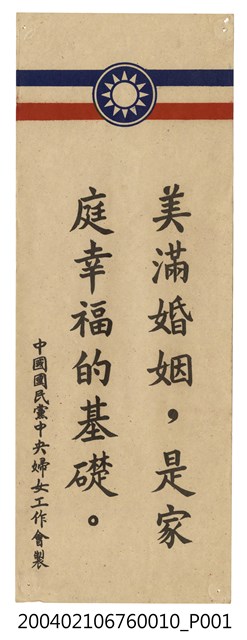 美滿婚姻，是家
庭幸福的基礎。
中國國民黨中央婦女工作會製
200402106760010_P001